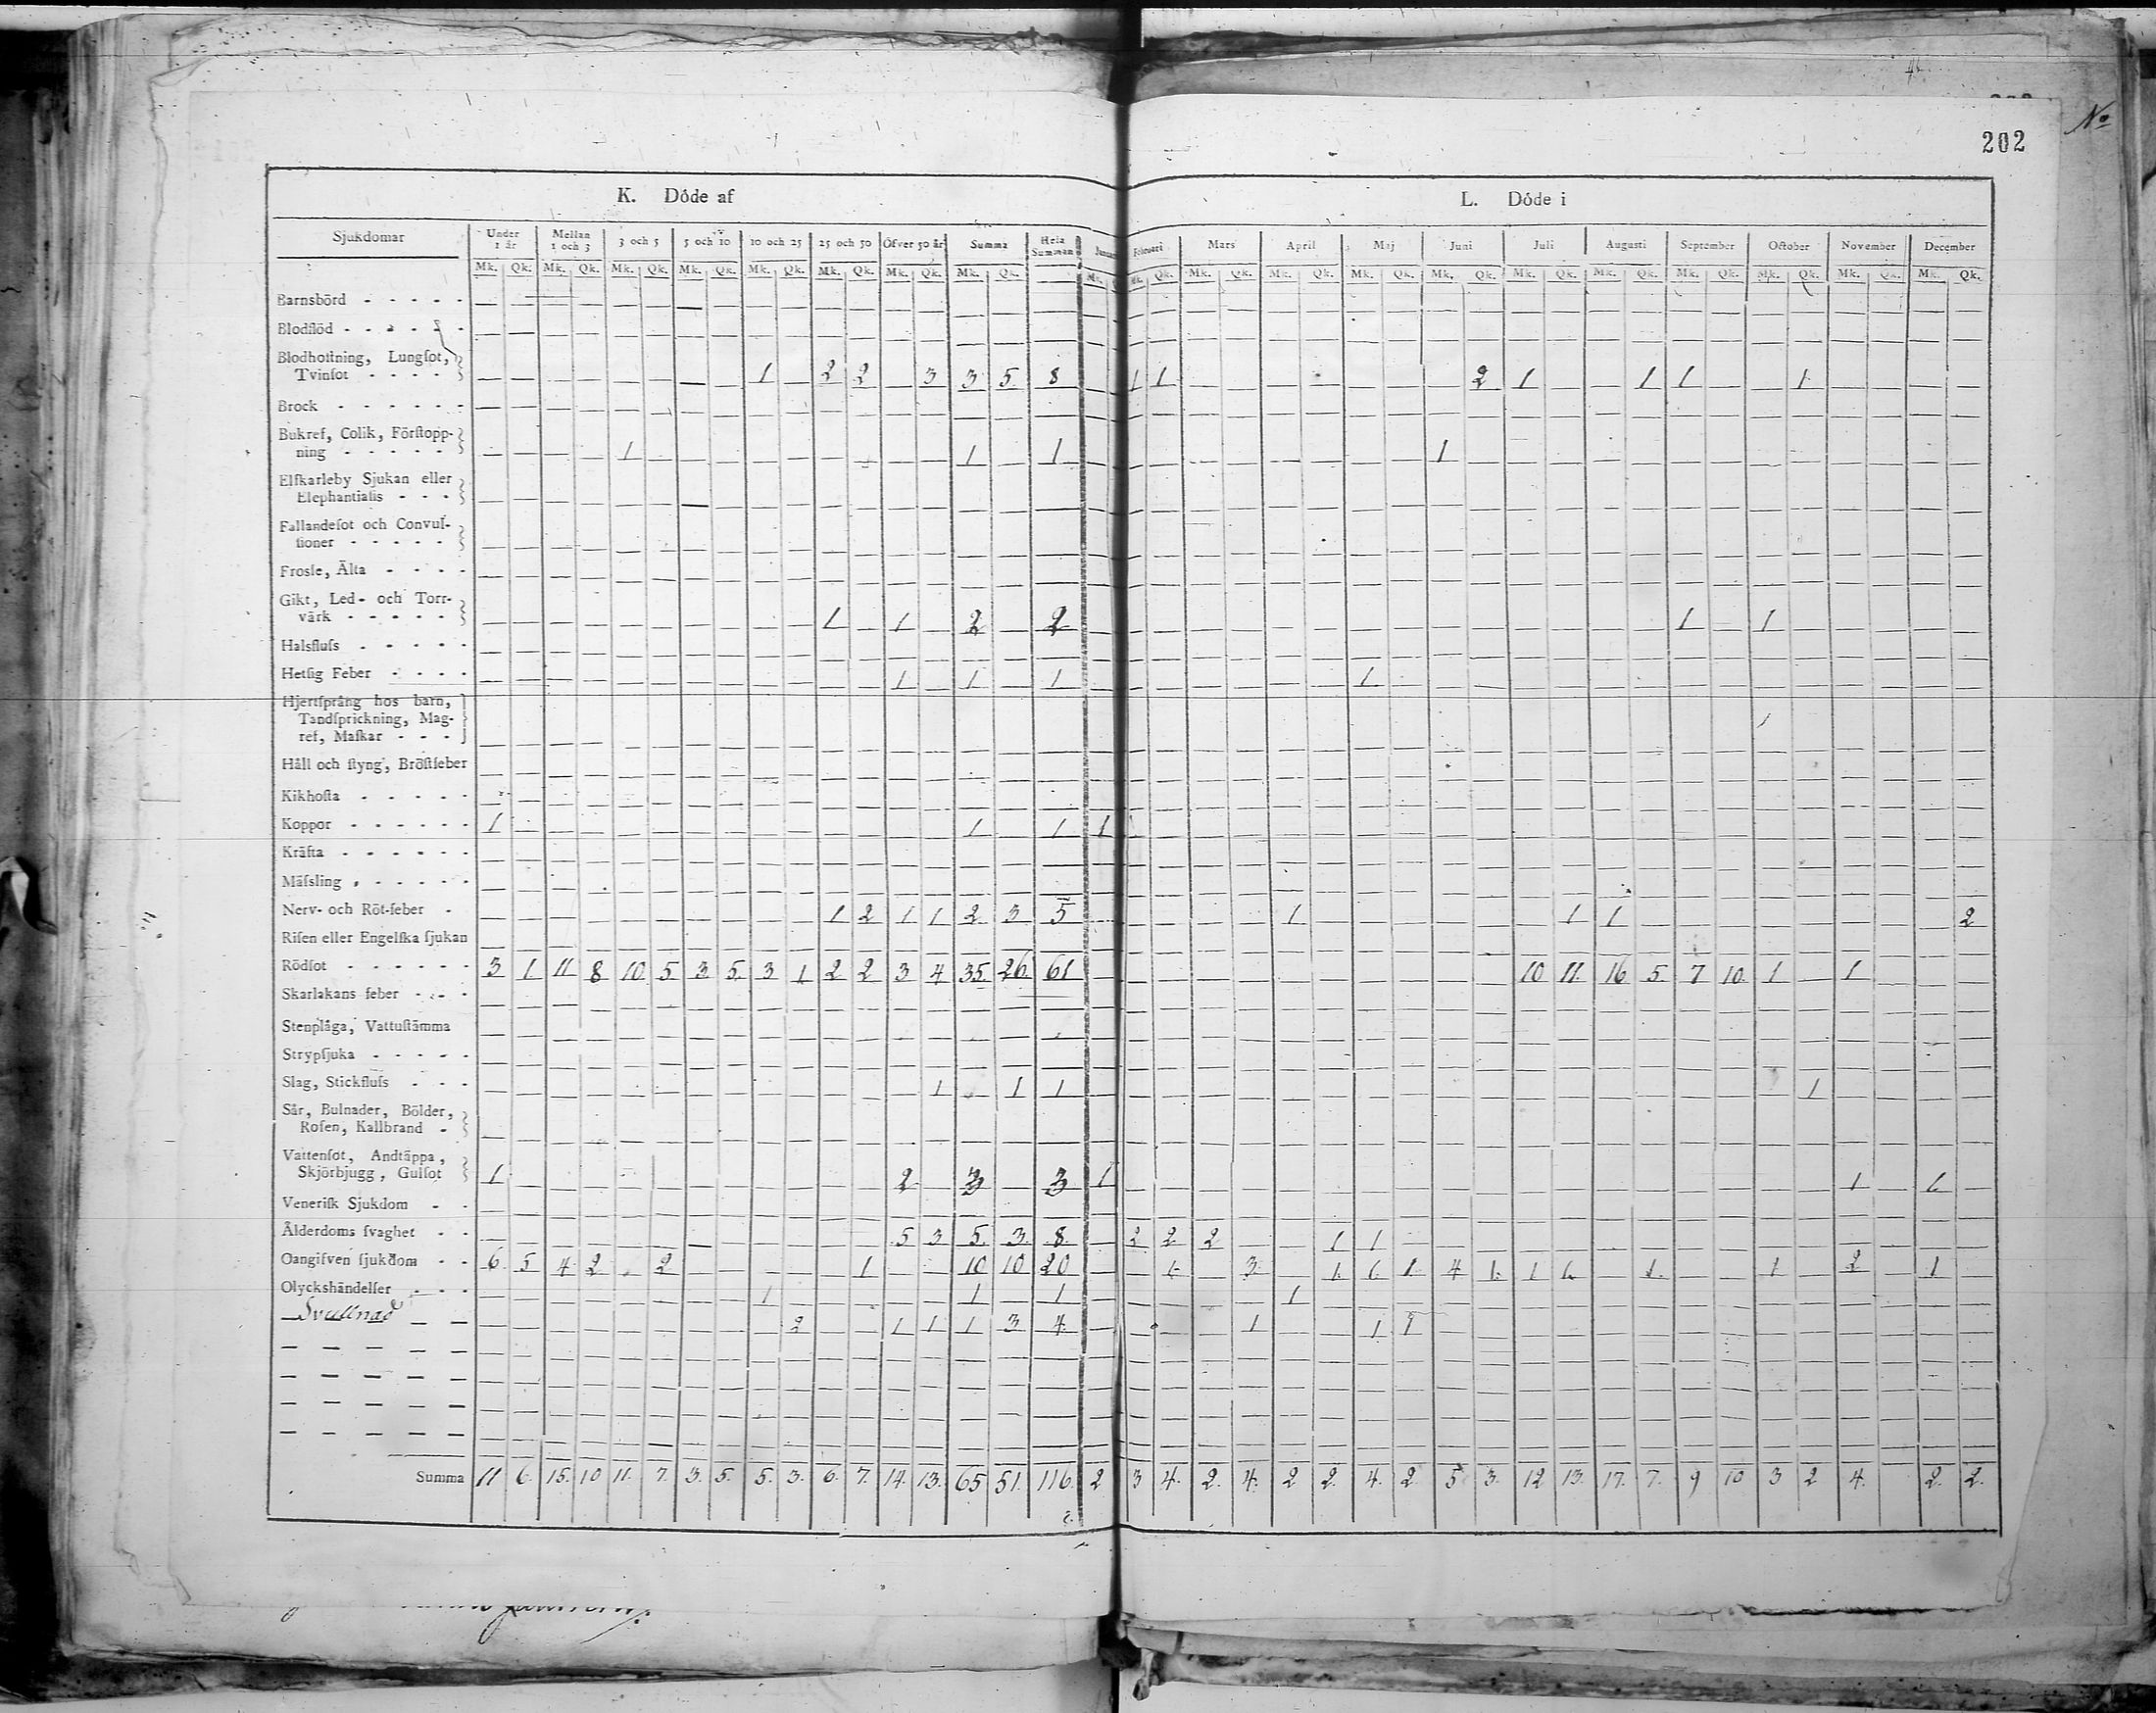 No
202
K. Döde af
L. Döde i
Sjukdomar | Under 1 år | Mellan 1 och 3 | 3 och 5 | 5 och 10 | 10 och 25 | 25 och 50 | Öfver 50 år | Summa | Hela Summan | Februari | Mars | April | Maj | Juni | Juli | Augusti | September | October | November | December
Mk. Qk. Mk. Qk. Mk. Qk. Mk. Qk. Mk. Qk. Mk. Qk. Mk. Qk. Mk. Qk. Mk. Mk. Qk. Mk. Qk. Mk. Qk. Mk. Qk. Mk. Qk. Mk. Qk. Mk. Qk. Mk. Qk. Mk. Qk. Mk. Qk. Mk. Qk.
Barnsbörd - - - - -
Blodflöd - - - - -
Blodhoſtning, Lungſot,
Tvinſot - - - - 1 — 2 2 — 3 3 5 8 1 1 2 1 1 1 1
Brock - - - - - -
Bukref, Colik, Förſtopp-
ning - - - - - 1 1 1 1
Elfkarleby Sjukan eller
Elephantiaſis - - -
Fallandeſot och Convulſ-
ſioner - - - - -
Frosſe, Älta - - - -
Gikt, Led- och Torr-
värk - - - - - 1 1 2 2 1 1
Halsfluſs - - - - -
Hetſig Feber - - - - 1 1 1 1
Hjertſprång hos barn,
Tandſprickning, Mag-
ref, Maſkar - - -
Håll och ſtyng, Bröſtfeber
Kikhoſta - - - - -
Koppor - - - - - - 1 1 1 1
Kräfta - - - - - -
Mäſsling - - - - -
Nerv- och Röt-feber - 1 2 1 1 2 3 5 1 1 1 2
Riſen eller Engelſka ſjukan
Rödſot - - - - - - 3 1 11 8 10 5 3 5 3 1 2 2 3 4 35 26 61 10 11 16 5 7 10 1 1
Skarlakans feber - - -
Stenplåga, Vattuſtämma
Strypſjuka - - - - -
Slag, Stickfluſs - - - 1 1 1 1
Sår, Bulnader, Bölder,
Roſen, Kallbrand -
Vattenſot, Andtäppa,
Skjörbjugg, Gulſot 1 2 3 3 1 1 1
Veneriſk Sjukdom - -
Ålderdoms ſvaghet - - 5 3 5 3 8 2 2 2 1 1
Oangifven ſjukdom - - 6 5 4 2 2 1 10 10 20 1 3 1 1 1 4 1 1 1 1 1 2 1
Olyckshändelſer - - - 1 1 1 1
Svullnad 2 1 1 1 3 4 1 1 1
Summa 11 6 15 10 11 7 3 5 5 3 6 7 14 13 65 51 116 2 3 4 2 4 2 2 4 2 5 3 12 13 17 7 9 10 3 2 4 2 2